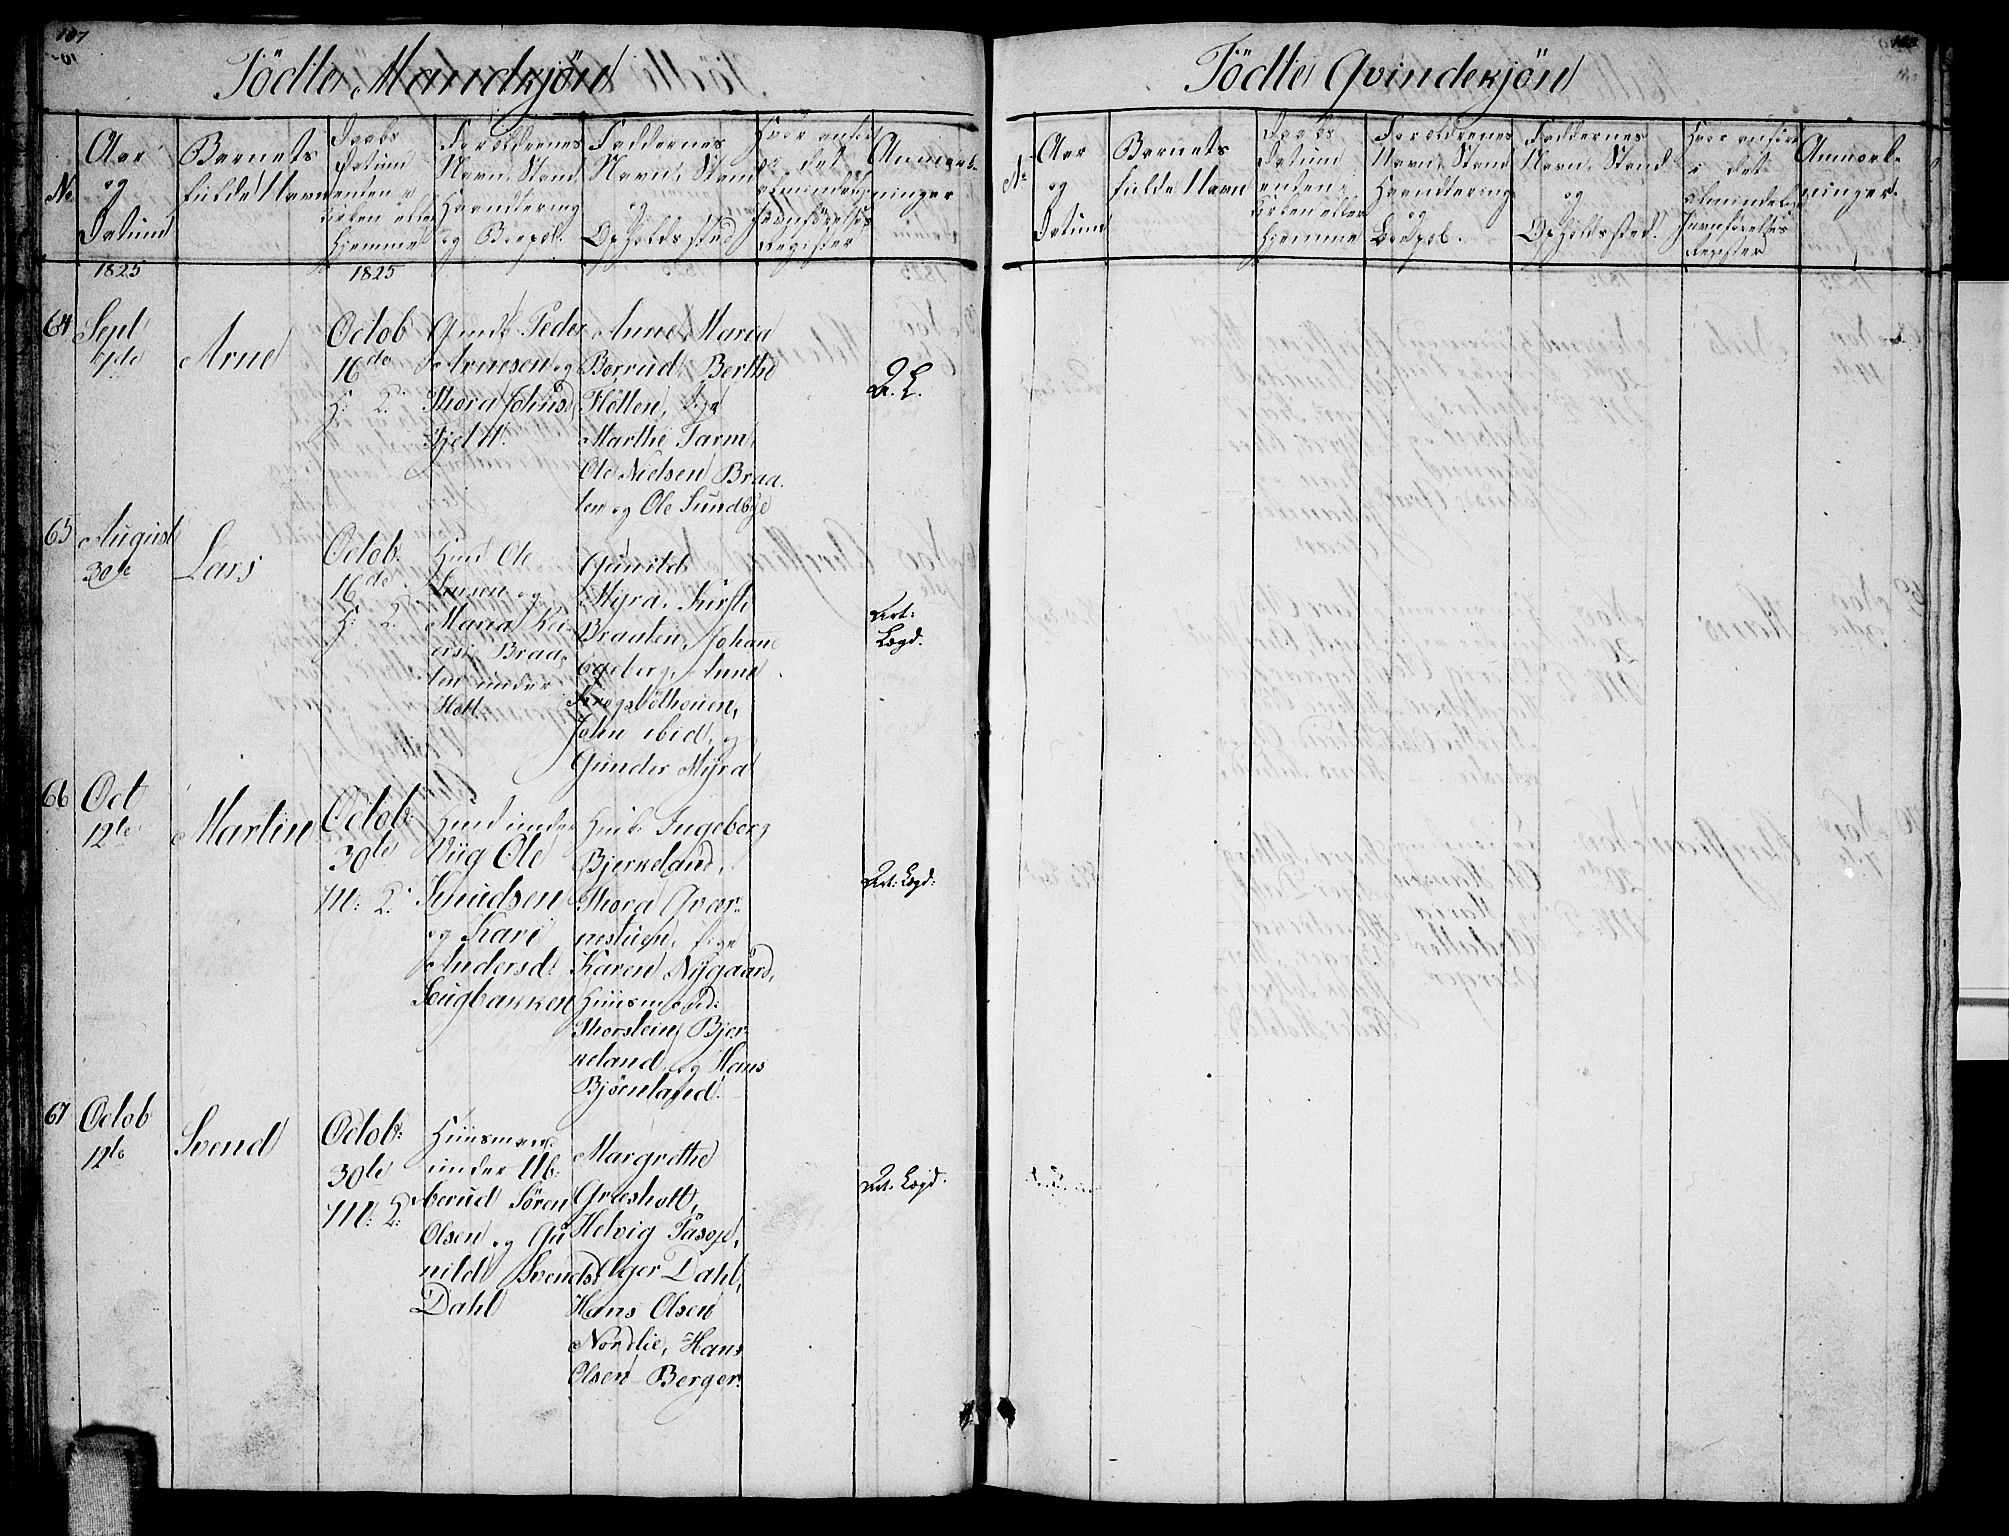 107
Födte Mandkjön
No
Aar
og
Datum
Barnets
fulde Navn
Daabs
Datum
enten i
Kirken eller
Hjemme
Forældrenes
Navn, Stand
Haandtering
og Boepæl.
Faddernes
Navn, Stand
og
Opholdssted
Hvor anført
i det
almindelige
Jevnførelses
Register
Anmærk-
ninger
1825
1825
64
Sept
Arne
Octob
16de
H: 2.
Gmd: Peder
Arnesen og
Thora Johnsd
Fjeld.
Anne Maria
Berrud, Berthe
Holten,
Marthe Tarm
Ole Nielsen Braa
ten og Ole Sundbye
A. L.
65
August
30te
Lars
Octob.
16de
H: 2.
Huusmd Ole
Larsen og
Maria
Braa-
ten under
Holt.
Gunild
Myra, Kirsti
Braaten, Johane
Anne
John ibid, og
Gunder Myra
Art:
Lægd.
66
Oct
12te
Martin
Octob:
30te
M: 2.
Huusmd under
Viig Ole
Knudsen
og Kari
Andersd:
Haugbakken
Ingeborg
Bjerkeland,
Thora Qvær-
nestuen, Pige
Karen Nÿgaard,
Huusmænd:
Thorstein Bjer-
keland og Hans
Bjöenland.
Art: Lægd:
67
Octob
12te
Svend
Octob:
30te
M: 2:
Huusmand
under Ub-
berud Sören
Olsen og Gu
nild Svendsd
Dahl
Margrethe
Græsholt,
Helvig Tasope,
Elger Dahl,
Hans Olsen
Nordlie, Hans
Olsen Berger.
Art. Lægd.
108
Födte Qvindekjön
No
Aar
og
Datum
Barnets
fulde Navn
Daabs
Datum
enten i
Kirken eller
Hjemme
Forældrenes
Navn, Stand
Haandtering
og
Boepæl.
Faddernes
Navn, Stand
og
Opholdssted.
Hvor anført
i det
almindelige
Jevnførelses
Register
Anmærk-
ninger.